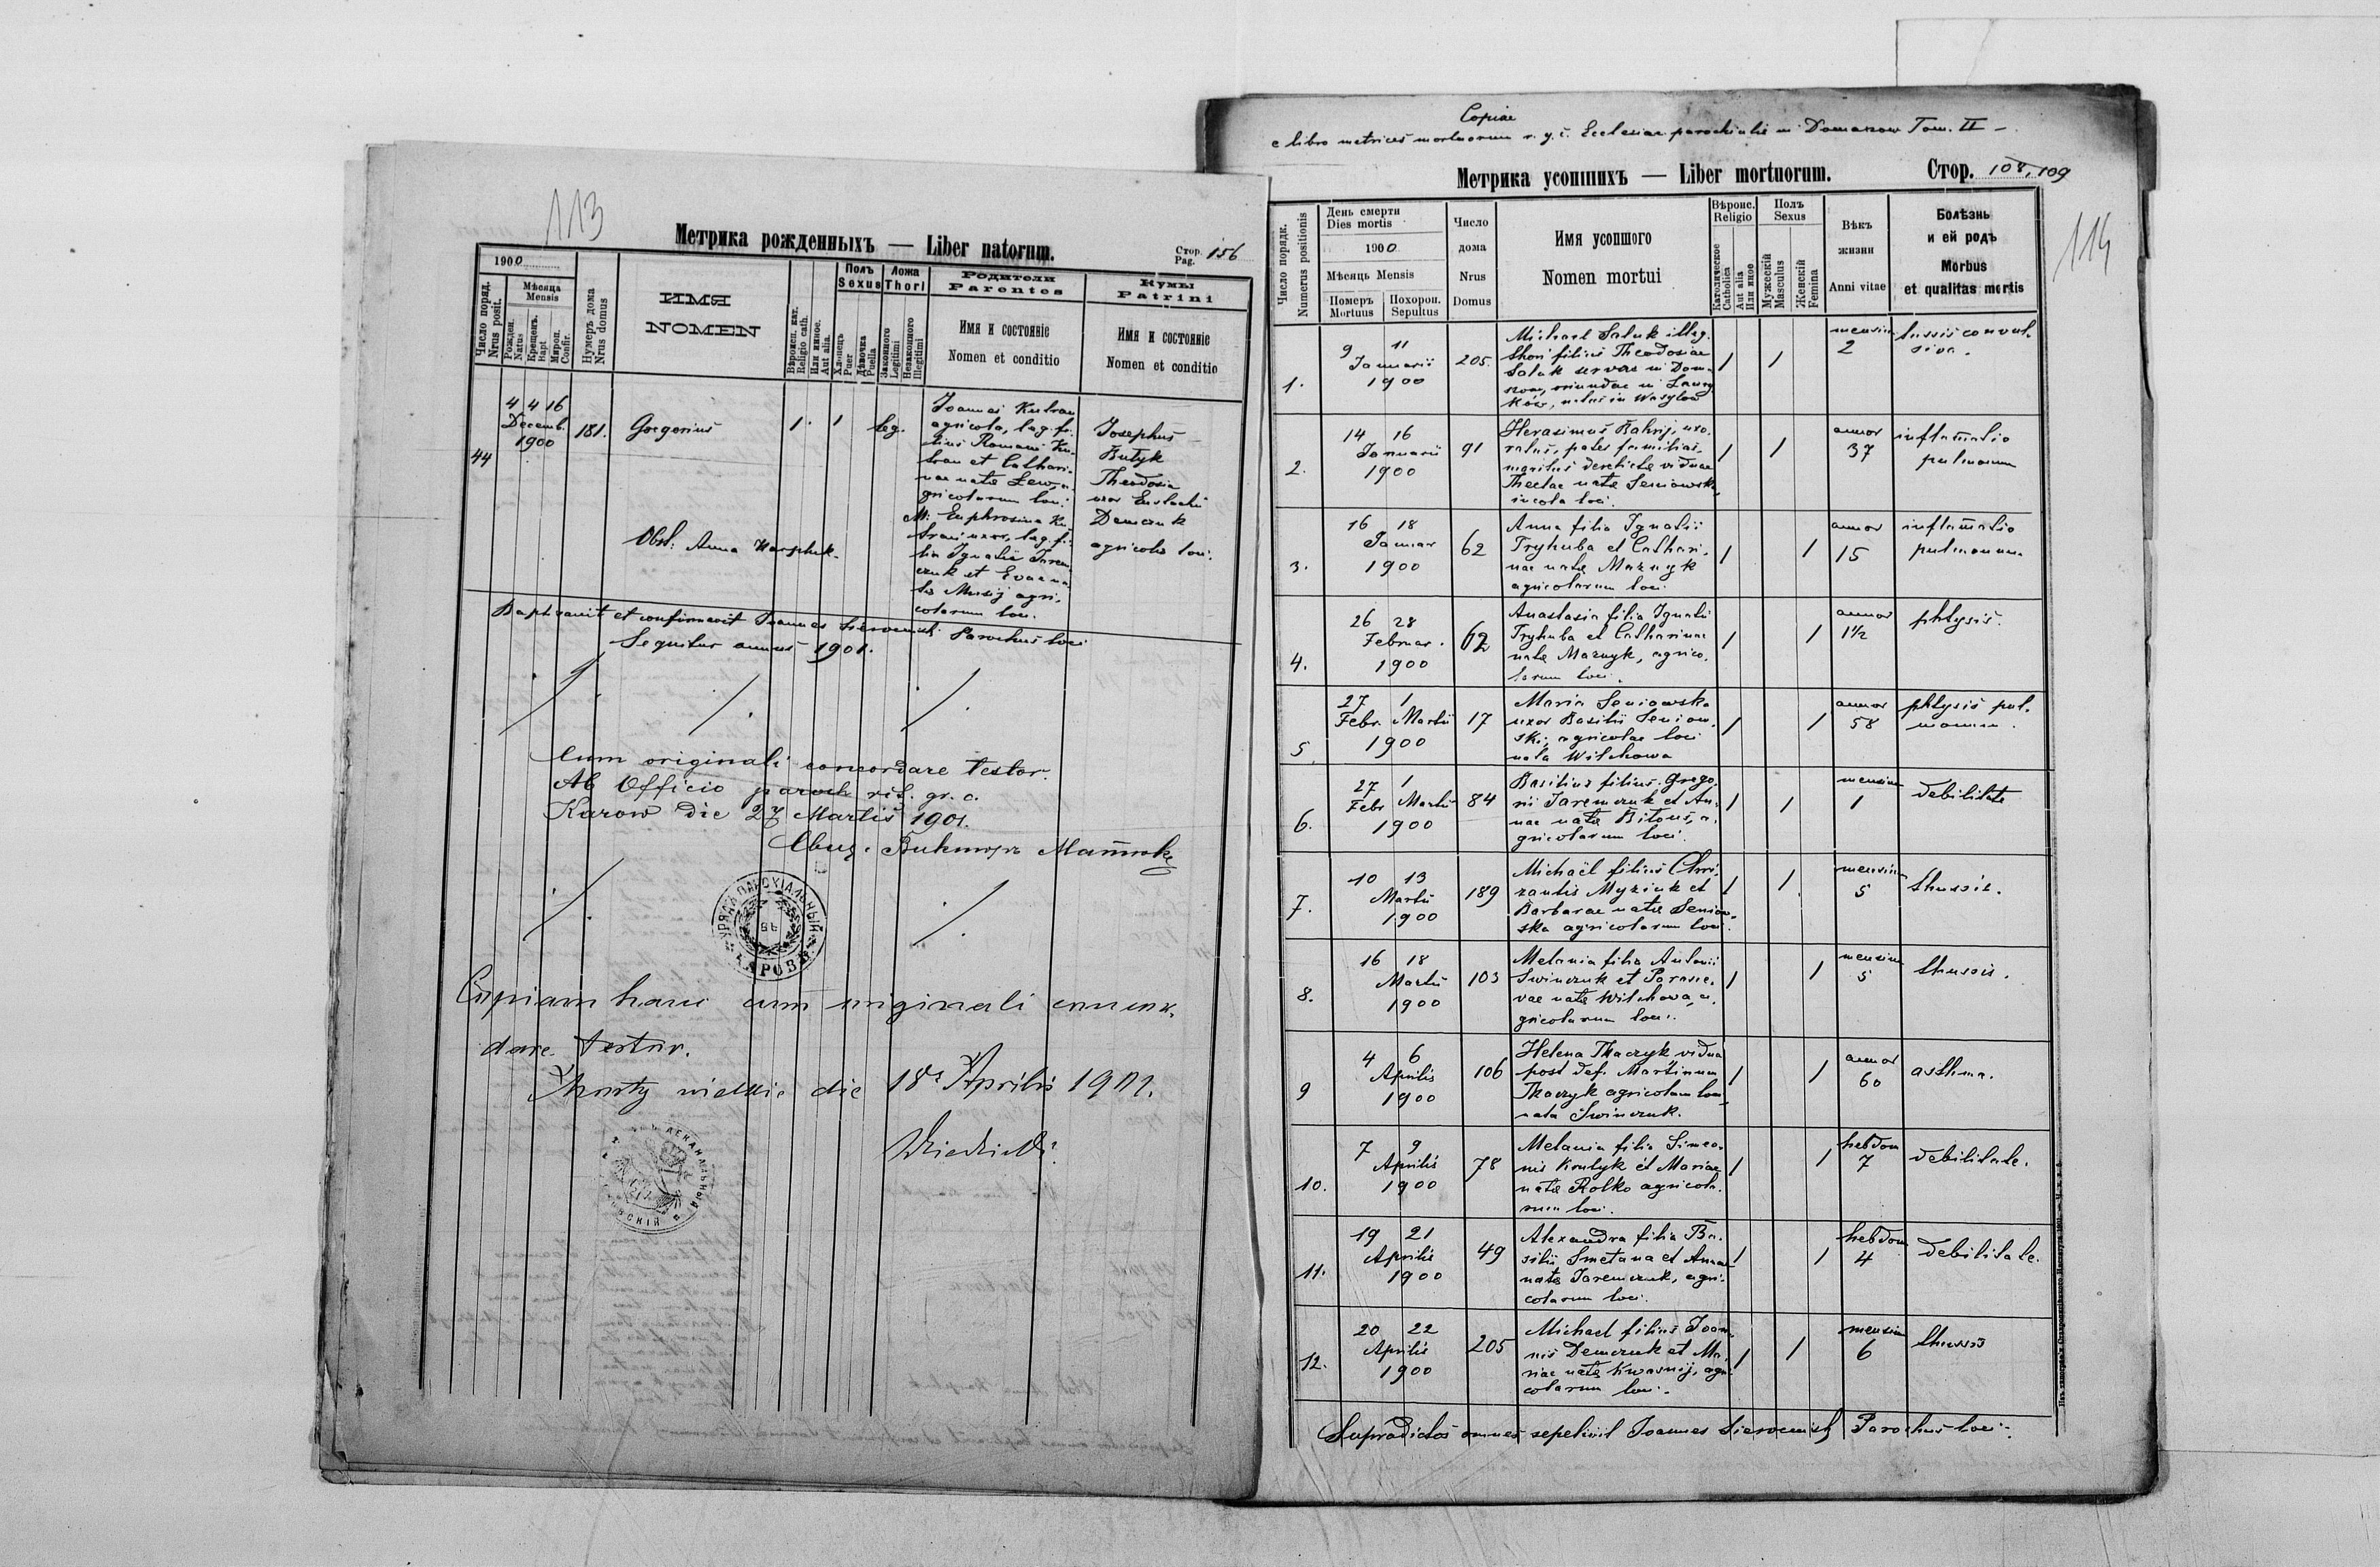 113
Метрика рожденныхъ — Liber natorum.
Стор.
Pag. 156
1900
Число поряд.
Nrus posit.
Мѣсяца
Mensis
Рожден.
Natus
Крещенъ.
Bapt
Миров.
Confir.
Нумеръ дома
Nrus domus
ИМЯ
NOMEN
Вѣроисп. кат.
Religio cath.
Или иное.
Aut alia.
Полъ
Sexus
Хлопецъ
Puer
Дѣвочка
Puella
Ложа
Thori
Законного
Legitimi
Незаконного
Illegitimi
Родители
Parentes
Имя и состояніе
Nomen et conditio
Кумы
Patrini
Имя и состояніе
Nomen et conditio
44
4 4 16
Decemb.
1900
181.
Gregorius
1.
1
leg.
Joannes
agricola, leg. fi-
lius Romani
et Cathari-
nae natae Lew, a-
gricolarum loci.
M: Euphrosina
uxor, leg. fi-
lia Ignatii Jarem-
czuk et Evae na-
tae Musij agri-
colarum loci.
Josephus
Butyk
Theodosia
uxor Eustachii
Demczuk
agricolae loci.
Obst: Anna
Baptizavit et confirmavit Joannes Parochus loci
Sequitur annus 1901.
Cum originali concordare testor.
Ab Officio paroch rit. gr. c.
Karow die 27 Martii 1901.
УРЯДЪ ПАРОХІАЛЬНЫЙ
КАРОВЪ
Copiam hanc cum originali concor-
dare testor.
die 18. Aprilis 1901.
Copiae
e libro metrices mortuorum r. g. c. Ecclesiae parochialis in Domaszow Tom. II —
Метрика усопшихъ — Liber mortuorum.
Стор. 108, 109
114
Число порядк.
Numerus positionis
День смерти
Dies mortis
1900
Мѣсяць Mensis
Померъ
Mortuus
Похорон.
Sepultus
Число
дома
Nrus
Domus
Имя усопшого
Nomen mortui
Вѣроис.
Religio
Католическое
Catholica
Aut alia
Или иное
Полъ
Sexus
Мужескій
Masculus
Женскій
Femina
Вѣкъ
жизни
Anni vitae
Болѣзнь
и ей родъ
Morbus
et qualitas mortis
1.
9 11
Januarii
1900
205.
Michael Saluk illeg.
thori filius Theodosiae
Saluk servae in Doma-
szow, oriundae in
natus in Wasylow
1
1
mensium
2
tussis convul-
siva.
2.
14 16
Januarii
1900
91
Herasimus Bahrij, uxo-
ratus, pater familias,
maritus derelictae viduae
Theclae natae Seniowska,
incola loci.
1
1
annor
37
inflamatio
pulmonum
3.
16 18
Januar
1900
62
Anna filia Ignatii
Tryhuba et Cathari-
nae natae Mazuyk
agricolarum loci.
1
1
annor
15
inflamatio
pulmonum
4.
26 28
Februar.
1900
62
Anastasia filia Ignatii
Tryhuba et Catharinae
natae Mazuyk, agrico-
larum loci.
1
1
annor
1½
phtysis.
5
27 1
Febr. Martii
1900
17
Maria Seniowska
uxor Basilii Seniow-
ski, agricolae loci
nata Witchowa
1
1
annor
58
phtysis pul-
monum.
6.
27 1
Febr Martii
1900
84
Basilius filius Grego-
rii Jaremczuk et An-
nae natae Bitous, a-
gricolarum loci.
1
1
mensium
1
debilitate
7.
10 13
Martii
1900
189
Michaël filius Chri-
zantis Myziuk et
Barbarae natae Seniow-
ska agricolarum loci.
1
1
mensium
5
thussis.
8.
16 18
Martii
1900
103
Melania filia Antonii
Swinczuk et Parasce-
vae natae Witchowa, a-
gricolarum loci.
1
1
mensium
5
thussis.
9
4 6
Aprilis
1900
106
Helena Tkaczyk vidua
post def. Martinum
Tkaczyk agricolam loci,
nata Swinczuk.
1
1
annor
60
asthma.
10.
7 9
Aprilis
1900
78
Melania filia Simeo-
nis Kontyk et Mariae
natae Rolko agricola-
rum loci.
1
1
hebdom
7
debilitate.
11.
19 21
Aprilis
1900
49
Alexandra filia Ba-
silii Smetana et Annae
natae Jaremczuk, agri-
colarum loci.
1
1
hebdom
4
debilitate.
12.
20 22
Aprilis
1900
205
Michael filius Joan-
nis Demczuk et Ma-
riae natae Kwasnij, agri-
colarum loci.
1
1
mensium
6
thussis
Supradictos omnes sepelivit Joannes Parochus loci.